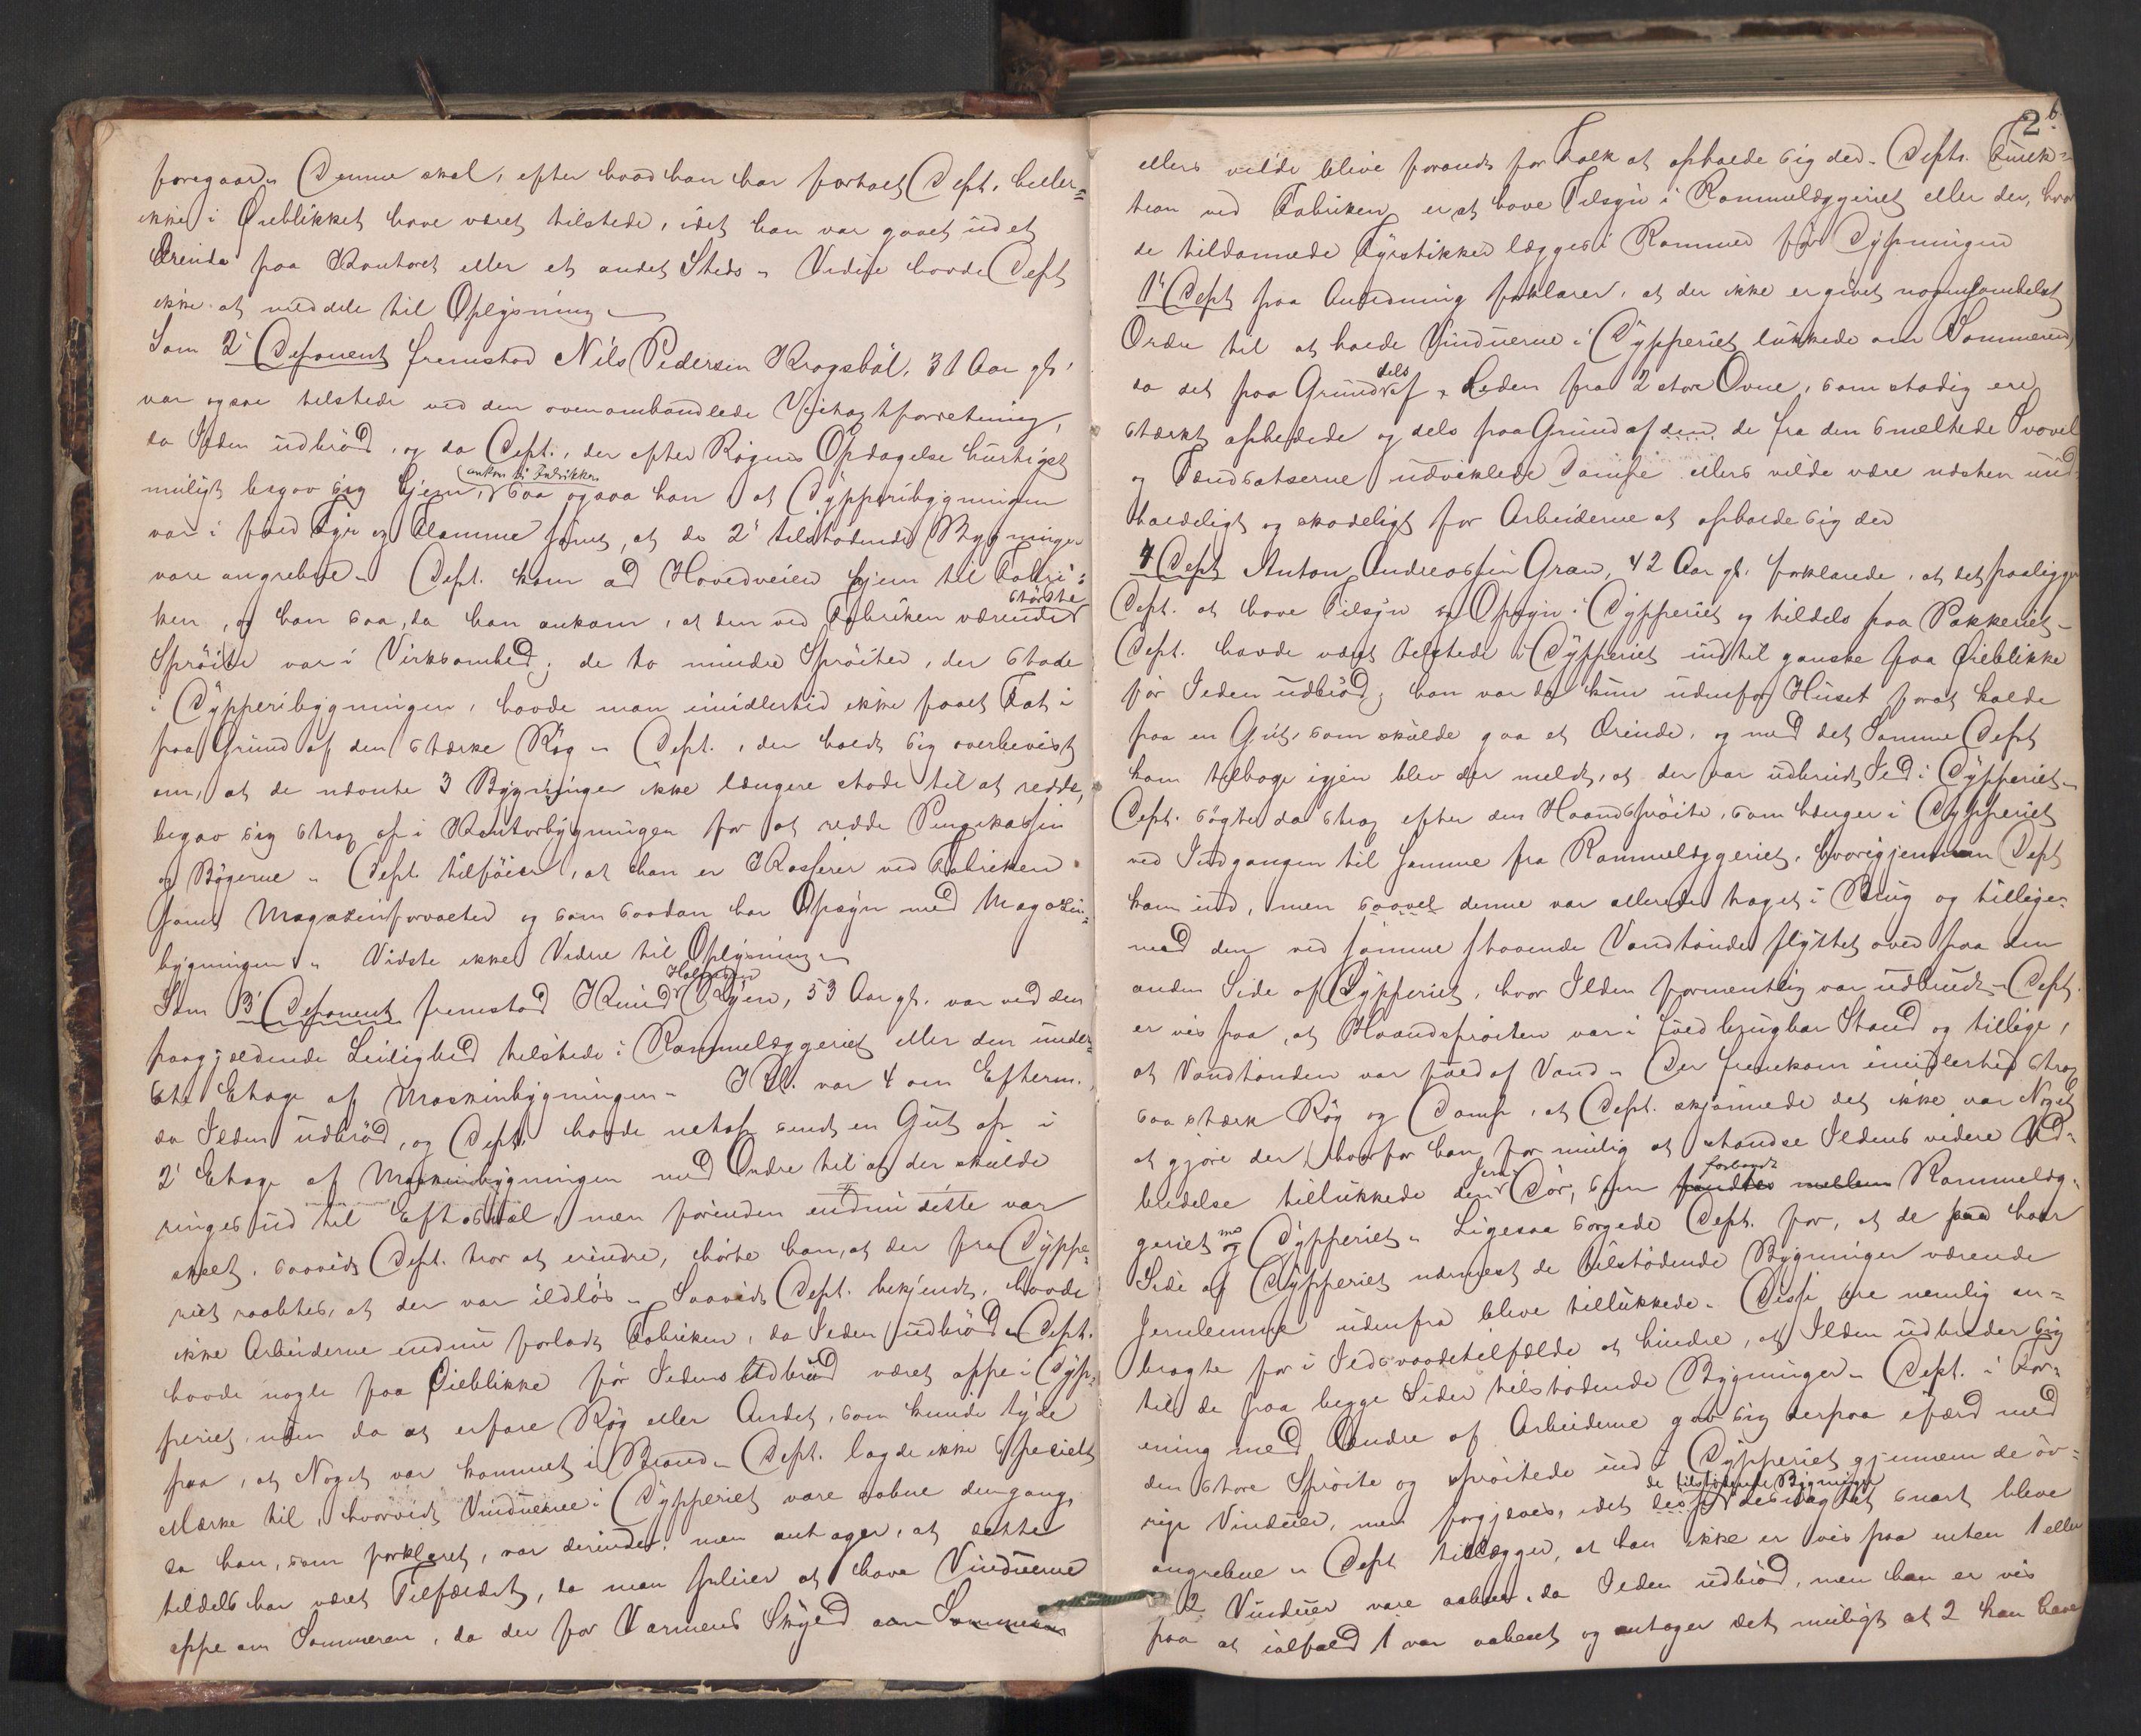 foregaar. Denne skal, efter hvad han har fortalt Dept. heller=
ikke i Øieblikket have været tilstede, idet han var gaaet ud et
Ærinde paa Kontoret eller et andet Steds. Videre havde Dept
ikke at meddele til Oplysning.
Som 2' Deponent fremstod Nils Pedersen Krogsböl, 31 Aar gl,
var ogsaa tilstede ved den ovenomhandlede forretning,
da Ilden udbröd, og da Dept., der efter Røgens Opdagelse hurtigst
ankom til Fabrikken
muligt begav sig hjem, saa ogsaa han at Dypperibygningen
var i fuld Fyr og Flamme samt, at de 2' tilstødende Bygninger
vare angrebne. Dept. kom ad Hovedveien hjem til Fabri=
største
ken, og han saa, da han ankom, at den ved Fabriken værende
Sprøite var i Virksomhed; de to mindre Sprøiter, der stode
i Dypperibygningen, havde man imidlertid ikke faaet Fat i
paa Grund af den stærke Røg. Dept., der holdt sig overbevist
om, at de nævnte 3 Bygninger ikke længere stode til at redde,
begav sig strax op i Kontorbygningen for at redde Pengekassen
og Bøgerne. Dept. tilføier, at han er Kasserer ved Fabriken
samt Magazinforvalter og som saadan har Opsyn med Magazin=
bygningen. Vidste ikke Videre til Oplysning.
Halvorsen
Som 3' Deponent fremstod Knud Ryen, 53 Aar gl. var ved den
paagjældende Leilighed tilstede i Rammelæggeriet eller den under=
ste Etage af Maskinbygningen. Kl. var 4 om Efterm.,
da Ilden udbröd, og Dept. havde netop sendt en Gut op i
2' Etage af Maskinbygningen med Ordre til at der skulde
ringes ud til Eftasmål, men førenden endnu dette var
skeet, saavidt Dept. tror at erindre, hörte han, at der fra Dyppe=
riet raabtes, at der var ildløs. Saavidt Dept. bekjendt, havde
ikke Arbeiderne endnu forladt Fabriken, da Ilden udbröd. Dept.
havde nogle faa Øieblikke før Ildens Udbrud været oppe i Dyp=
periet uden da at erfare Røg eller Andet, som kunde tyde
paa, at Noget var kommet i Brand. Dept. lagde ikke specielt
Mærke til, hvorvidt Vinduerne i Dypperiet vare aabne dengang,
da han, som forklaret, var derinde, men antager, at dette
tildels har været Tilfældet, da man pleier at have Vinduerne
oppe om Sommeren, da der for Varmens Skyld om Sommeren
26
ellers vilde blive forondt for Folk at opholde sig der. Depts. Funk=
tion ved Fabriken er at have Tilsyn i Rammelæggeriet eller der, hvor
de tildannede Fyrstikker lægges i Rammer før Dypningen
1' Dept paa Anledning forklarer, at der ikke er givet nogensomhelst
Ordre til at holde Vinduerne i Dypperiet lukkede om Sommeren,
dels
da det paa Grund af Heden fra 2 store Ovne, som stadig ere
stærkt ophedede og dels paa Grund af den de fra den smeltede Svovel
og Tændsatserne udviklede Dampe ellers vilde være næsten uud=
holdeligt og skadeligt for Arbeiderne at opholde sig der
4 Dept Anton Andreassen Gran, 42 Aar gl. forklarede, at det paaligger
Dept. at have Tilsyn og Opsyn i Dypperiet og tildels paa Pakkeriet.
Dept. havde været tilstede i Dypperiet indtil ganske faa Øieblikke
før Ilden udbröd; han var da kun udenfor Huset forat kalde
paa en Gut, som skulde gaa et Ærinde, og med det Samme Dept
kom tilbage igjen blev der meldt, at der var udbrudt Ild i Dypperiet.
Dept. søgte da strax efter den Haandsprøite, som hænger i Dypperiet
ved Indgangen til samme fra Rammelæggeriet, hvorigjennem Dept
kom ind, men saavel denne var allerede taget i Brug og tillige=
med den ved samme staaende Vandtønde flyttet over paa den
anden Side af Dypperiet, hvor Ilden formentlig var udbrudt. Dept.
er vis paa, at Haandsprøiten var i fuld brugbar Stand og tillige,
at Vandtønden var fuld af Vand. Der fremkom imidlertid strax
saa stærk Røg og Damp, at Dept. skjønnede det ikke var Noget
at gjøre der, hvorfor han for mulig at standse Ildens videre Ud=
Jern forbandt
bredelse tillukkede den Dør, som fandtes mellem Rammelæg=
geriet med og Dypperiet. Ligesaa sørgede Dept. for, at de paa hver
Side af Dypperiet nærmest de tilstødende Bygninger værende
Jernlemme udenfra bleve tillukkede. Disse ere nemlig an=
bragte for i Ildsvaadetilfælde at hindre, at Ilden udbreder sig
til de paa begge Sider tilstødende Bygninger. Dept. i For=
ening med Andre af Arbeiderne gav sig derpaa ifærd med
den store Sprøite og sprøitede ind i Dypperiet gjennem de öv=
de tilstødende Bygninger
rige Vinduer, men forgjæves, idet disse desuagtet snart bleve
angrebne. Dept tillægger, at han ikke er vis paa enten 1 eller
2 Vinduer vare aabne, da Ilden udbröd, men han er vis
paa at ialfald 1 var aabent og antager det muligt at 2 kan have